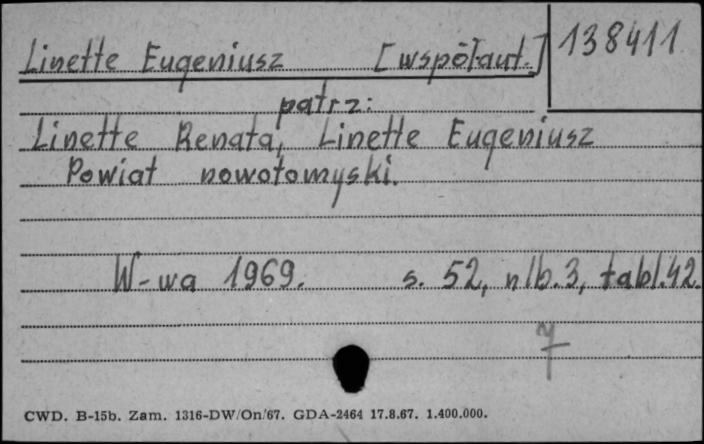 Linette Eugeniusz [współaut.] 138411
patrz:
Linette Renata, Linette Eugeniusz
Powiat nowotomyski.
W-wa 1969. s. 52, nlb. 3, tabl. 42.
7
CWD. B-15b. Zam. 1316-DW/On/67. GDA-2464 17.8.67. 1.400.000.